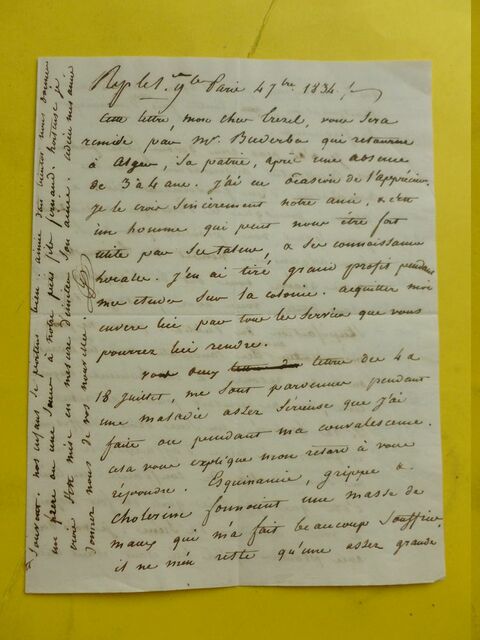 Rep le 1. 9bre Paris 4 7bre 1834
Cette lettre, mon cher Trezel, vous sera
remise par Mr. Buderba qui retourne
à Alger, Sa patrie, après une absence
de 3 à 4 ans. j'ai eu ocasion de l'apprécier.
je le crois sincèrement notre ami, & c'est
un homme qui peut nous être fort
utile par ses talens, & ses connaissances
locales. j'en ai tiré grand profit pendant
mes etudes sur la colonie. acquittez moi
envers lui par tous les services que vous
pourrez lui rendre.
vos deux lettres des 4 &
18 juillet, me sont parvenues pendant
une maladie assez sérieuse que j'ai
faite ou pendant ma convalescence.
cela vous explique mon retard à vous
répondre. Esquinancie, grippe &
cholerine formaient une masse de
maux qui m'a fait beaucoup souffrir.
il ne m'en reste qu'une assez grande
souvent. nos enfans se portent bien. aimée doit bientôt nous donner
un frère ou une soeur à notre petit fils fernand. hortense je
crois être mise en mesure d'imiter son ainée. adieu mes amis
donnez nous de vos nouvelles.